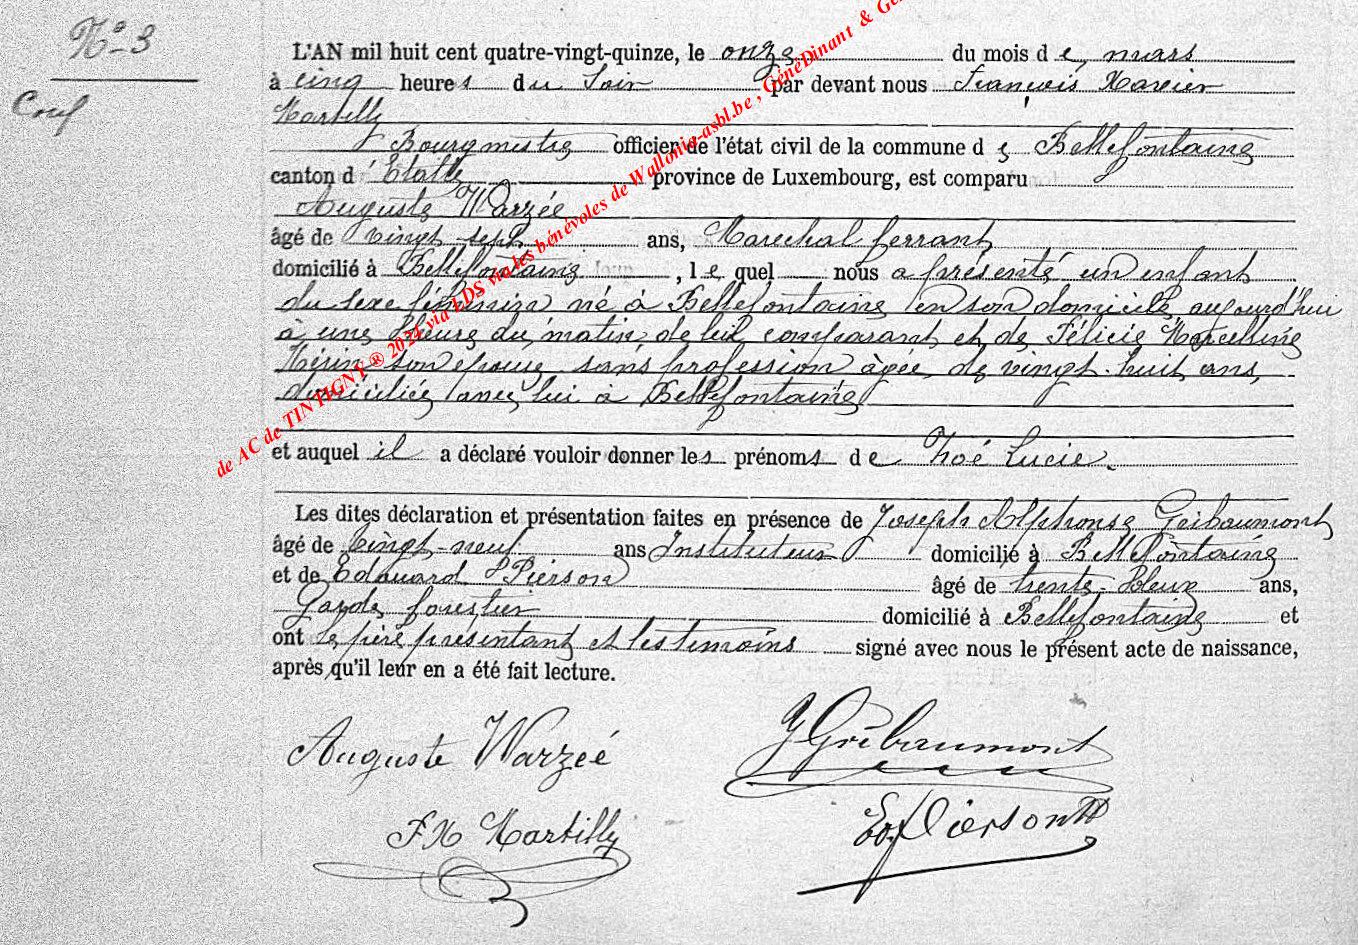 N° 3
L'AN mil huit cent quatre-vingt-quinze, le onze du mois de mars
à cinq heures du soir par devant nous François Xavier
Martilly
Bourgmestre officier de l'état civil de la commune de Bellefontaine
canton d'Etalle province de Luxembourg, est comparu
Auguste Warzée
âgé de vingt-sept ans, Marechal ferrant
domicilié à Bellefontaine, lequel nous a présenté un enfant
du sexe féminin né à Bellefontaine en son domicile, aujourd'hui
à une heure du matin de lui comparant et de Félicie Marcelline
son épouse sans profession âgée de vingt-huit ans,
domiciliée avec lui à Bellefontaine
et auquel il a déclaré vouloir donner les prénoms de Zoé Lucie.
Les dites déclaration et présentation faites en présence de Joseph Alphonse Gribaumont
âgé de vingt-neuf ans Instituteur domicilié à Bellefontaine
et de Edouard Pierson âgé de trente-deux ans,
Garde forestier domicilié à Bellefontaine et
ont le père présentant et les temoins signé avec nous le présent acte de naissance,
après qu'il leur en a été fait lecture.
Auguste Warzée
J Gribaumont
FX Martilly
Ed. Pierson
de AC de TINTIGNY ® 2024 via LDS via les bénévoles de Wallonia-asbl.be , GénéDinant &